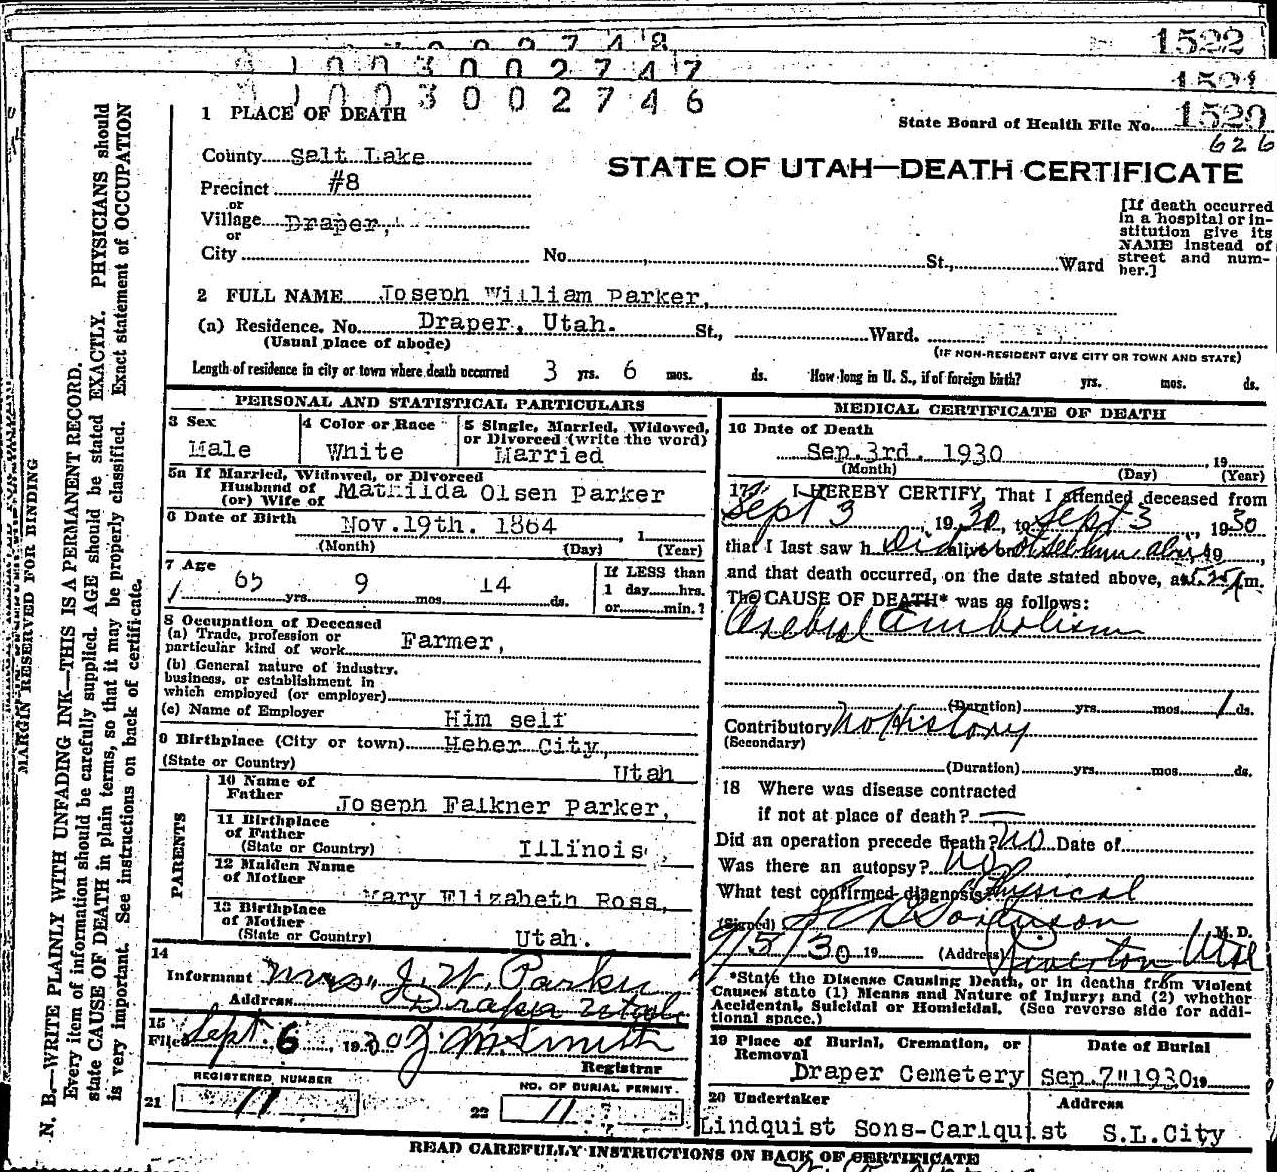 1522
3002748
1521
3002747
3002746
1 PLACE OF DEATH
State Board of Health File No. 1520
626
County Salt Lake
STATE OF UTAH—DEATH CERTIFICATE
Precinct #8
or
Village Draper,
or
City No. , St., Ward
[If death occurred in a hospital or in-
stitution give its
NAME instead of
street and num-
ber.]
2 FULL NAME Joseph William Parker,
(a) Residence. No. Draper, Utah. St., Ward.
(Usual place of abode)
(IF NON-RESIDENT GIVE CITY OR TOWN AND STATE)
Length of residence in city or town where death occurred 3 yrs. 6 mos. ds. How long in U. S., if of foreign birth? yrs. mos. ds.
PERSONAL AND STATISTICAL PARTICULARS
3 Sex
Male
4 Color or Race
White
5 Single, Married, Widowed,
or Divorced (write the word)
Married
5a If Married, Widowed, or Divorced
Husband of
(or) Wife of Mathilda Olsen Parker
6 Date of Birth
Nov.19th. 1864 , 1
(Month) (Day) (Year)
7 Age
65 yrs. 9 mos. 14 ds.
If LESS than
1 day hrs.
or min.?
8 Occupation of Deceased
(a) Trade, profession or
particular kind of work Farmer,
(b) General nature of industry.
business, or establishment in
which employed (or employer)
(c) Name of Employer Him self
9 Birthplace (City or town) Heber City,
(State or Country) Utah
PARENTS
10 Name of
Father Joseph Falkner Parker,
11 Birthplace
of Father
(State or Country) Illinois,
12 Maiden Name
of Mother
Mary Elizabeth Ross,
13 Birthplace
of Mother
(State or Country) Utah.
14
Informant Mrs J. W. Parker
Address Draper Utah
15
Filed Sept. 6, 1930 J. M. Smith
Registrar
REGISTERED NUMBER
21 11
NO. OF BURIAL PERMIT
22 11
MEDICAL CERTIFICATE OF DEATH
16 Date of Death
Sep.3rd. 1930 , 19
(Month) (Day) (Year)
17 I HEREBY CERTIFY, That I attended deceased from
Sept 3, 1930, to Sept 3, 1930
that I last saw h Did not see him alive alive on 19
and that death occurred, on the date stated above, at m.
The CAUSE OF DEATH* was as follows:
Cerebral Embolism
(Duration) yrs. mos. 1 ds.
Contributory No History
(Secondary)
(Duration) yrs. mos. ds.
18 Where was disease contracted
if not at place of death? —
Did an operation precede death? No Date of
Was there an autopsy? No
What test confirmed diagnosis? Physical
(Signed) Sorenson M. D.
9/5/30 19 (Address) Riverton Utah
*State the Disease Causing Death, or in deaths from Violent
Causes state (1) Means and Nature of Injury; and (2) whether
Accidental, Suicidal or Homicidal. (See reverse side for addi-
tional space.)
19 Place of Burial, Cremation, or
Removal
Draper Cemetery
Date of Burial
Sep 7" 1930 19
20 Undertaker
Lindquist Sons-Carlquist
Address
S.L.City
READ CAREFULLY INSTRUCTIONS ON BACK OF CERTIFICATE
MARGIN RESERVED FOR BINDING
N. B.—WRITE PLAINLY WITH UNFADING INK—THIS IS A PERMANENT RECORD.
Every item of information should be carefully supplied. AGE should be stated EXACTLY. PHYSICIANS should
state CAUSE OF DEATH in plain terms, so that it may be properly classified. Exact statement of OCCUPATION
is very important. See instructions on back of certificate.